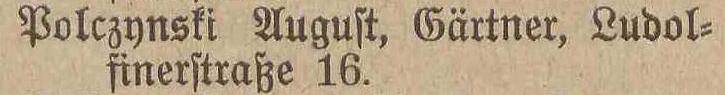 Polczynski August, Gärtner, Ludol-
finerstraße 16.